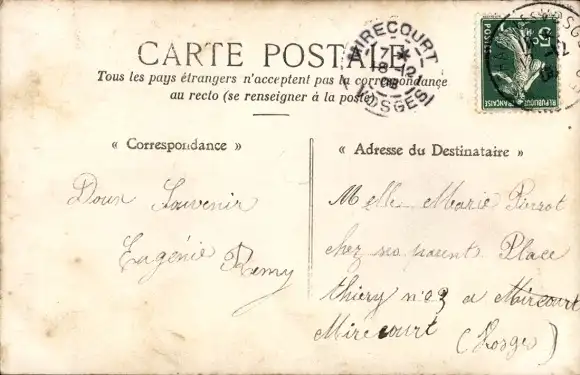 CARTE POSTALE
Tous les pays étrangers n'acceptent pas la correspondance
au recto (se renseigner à la poste)
MIRECOURT
17 *
8-12
08
VOSGES
5c
REPUBLIQUE FRANÇAISE
« Correspondance »
Doux Souvenir
Eugénie Remy
« Adresse du Destinataire »
Melle Marie Pierrot
chez ses parent Place
thiery n° 23 a Mircourt
Mirecourt (Vosges)